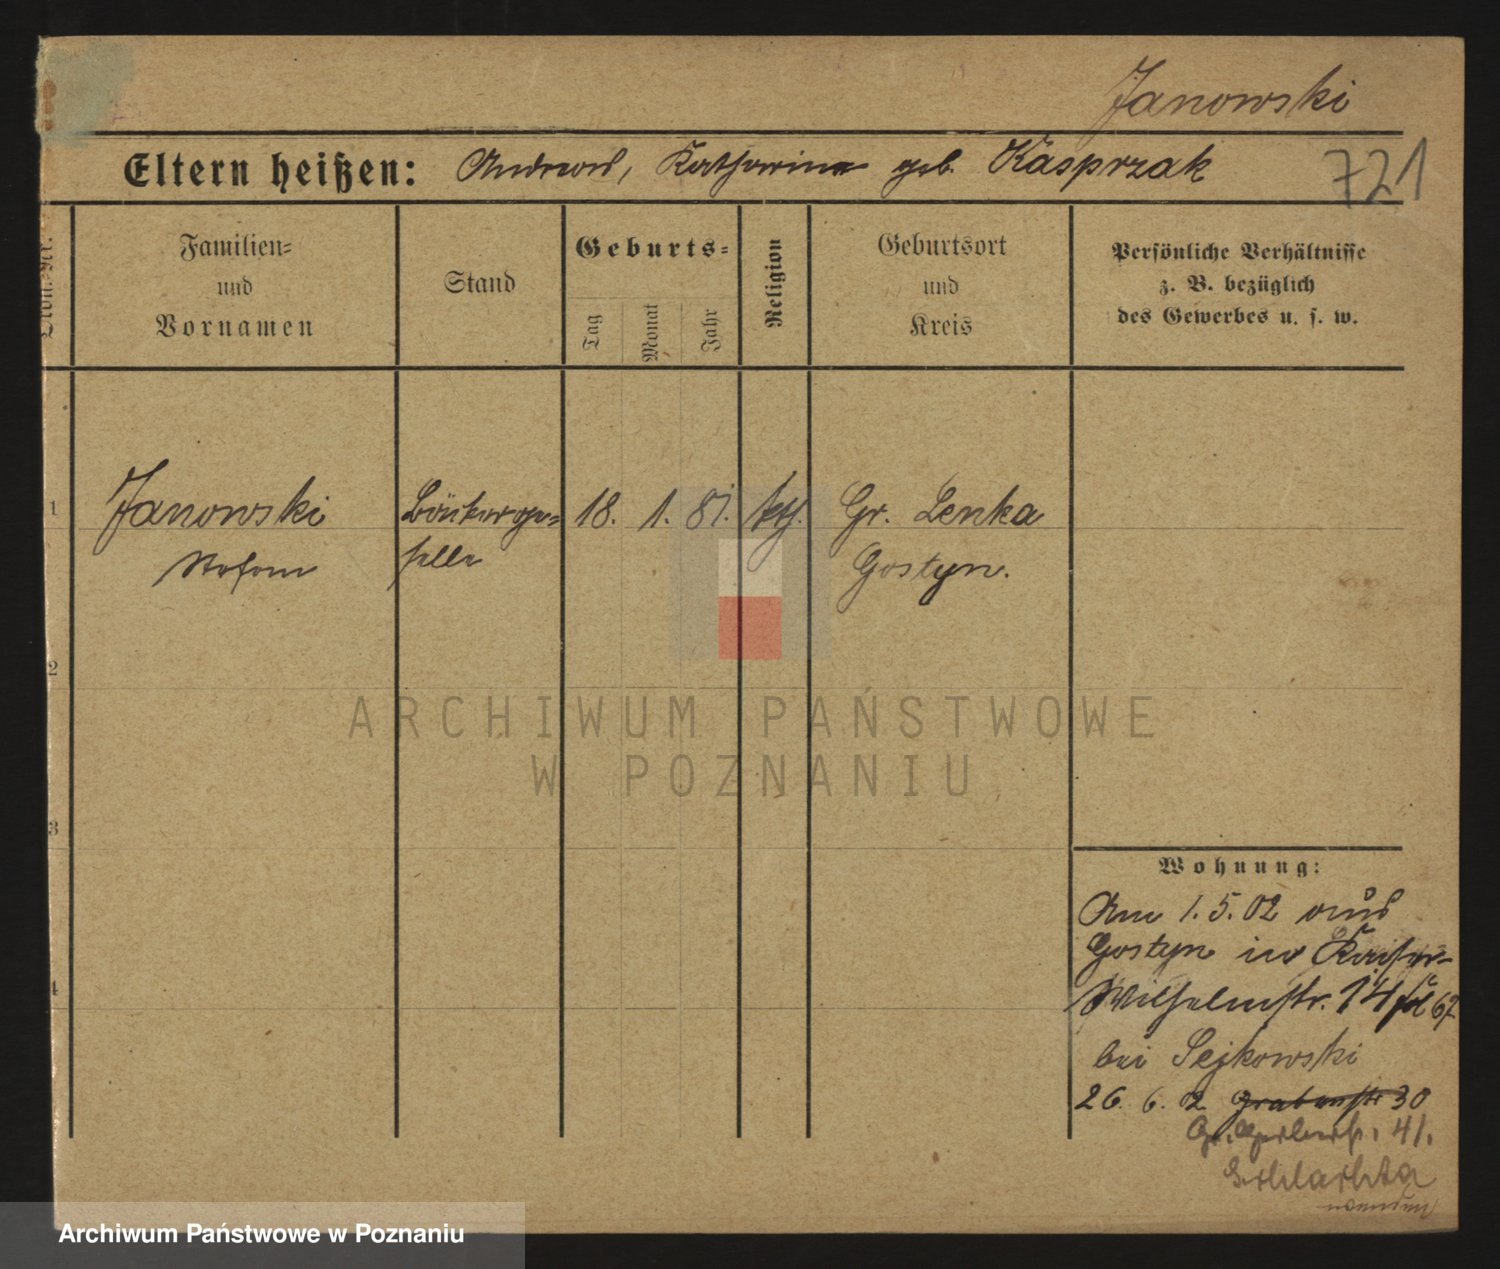 Janowski
Eltern heißen: Andreas, Katharina geb. Kasprzak
721
Familien-
und
Vornamen
Stand
Geburts-
Tag
Monat
Jahr
Religion
Geburtsort
und
Kreis
Persönliche Verhältnisse
z. B. bezüglich
des Gewerbes u. s. w.
1
Janowski
Stefan
18. 1. 81.
kth.
Gr. Lenka
Gostyn.
2
3
4
Wohnung:
Am 1.5.02 aus
Gostyn in Kaiser-
Wilhelmstr. 14
bei Sejkowski
26. 6. 2 Grabenstr 30
Gr. Gerberstr. 41.
wenden
ARCHIWUM PAŃSTWOWE
W POZNANIU
Archiwum Państwowe w Poznaniu